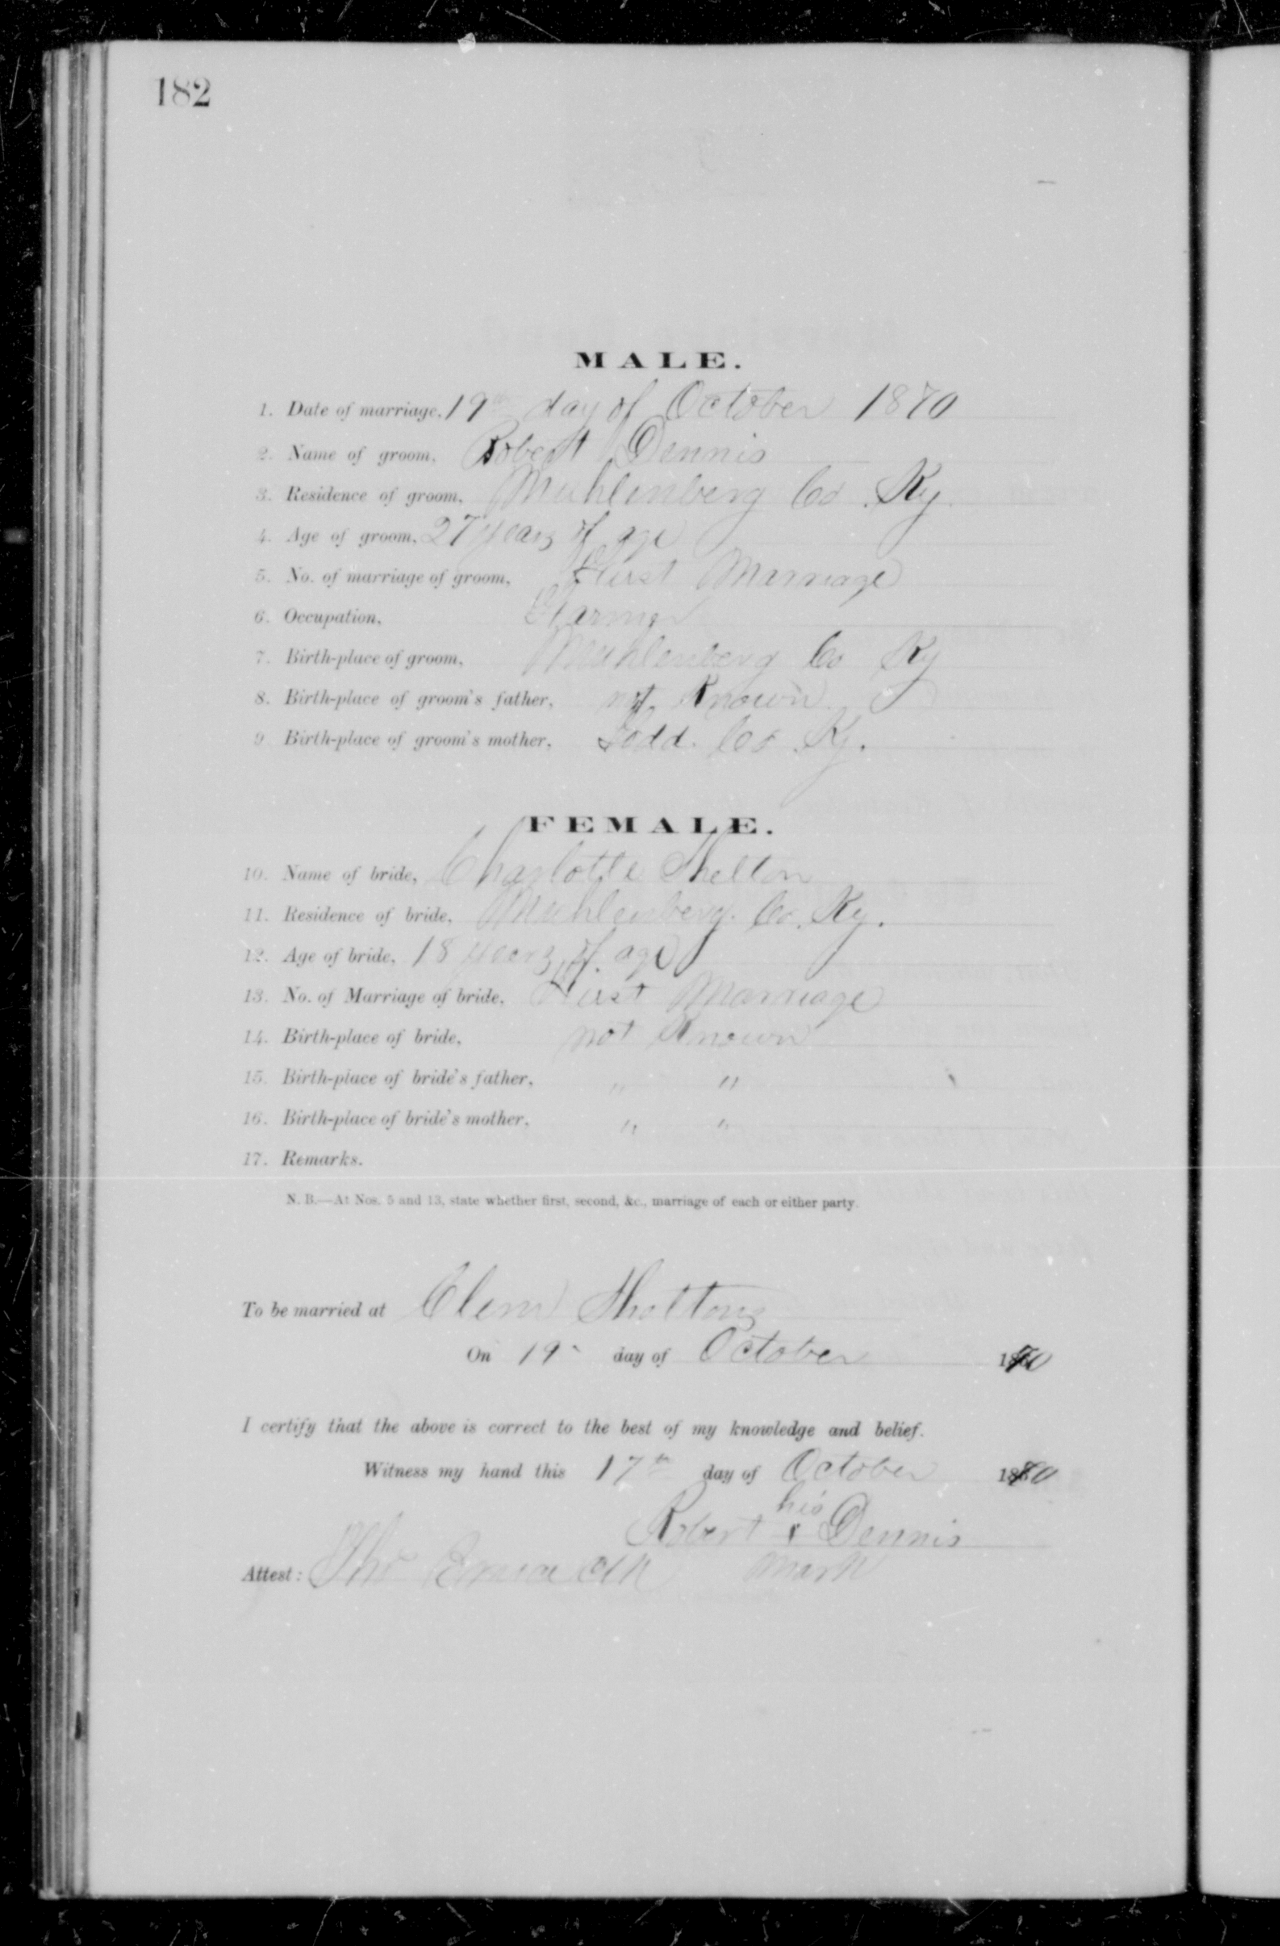 182
MALE.
1. Date of marriage, 19th day of October 1870
2. Name of groom, Robert Dennis
3. Residence of groom, Muhlenberg Co. Ky
4. Age of groom, 27 years of age
5. No. of marriage of groom, First Marriage
6. Occupation, Farmer
7. Birth-place of groom, Muhlenberg Co Ky
8. Birth-place of groom's father, not Known
9 Birth-place of groom's mother, Todd. Co Ky.
FEMALE.
10. Name of bride, Charlotte Shelton
11. Residence of bride, Muhlenberg. Co. Ky.
12. Age of bride, 18 years of age
13. No. of Marriage of bride, First Marriage
14. Birth-place of bride, not Known
15. Birth-place of bride's father, " "
16. Birth-place of bride's mother, " "
17. Remarks.
N. B.—At Nos. 5 and 13, state whether first, second, &c., marriage of each or either party.
To be married at Clem Sheltons
On 19 day of October 1870
I certify that the above is correct to the best of my knowledge and belief.
Witness my hand this 17th day of October 1870
his
Robert x Dennis
Attest: Tho Clk mark